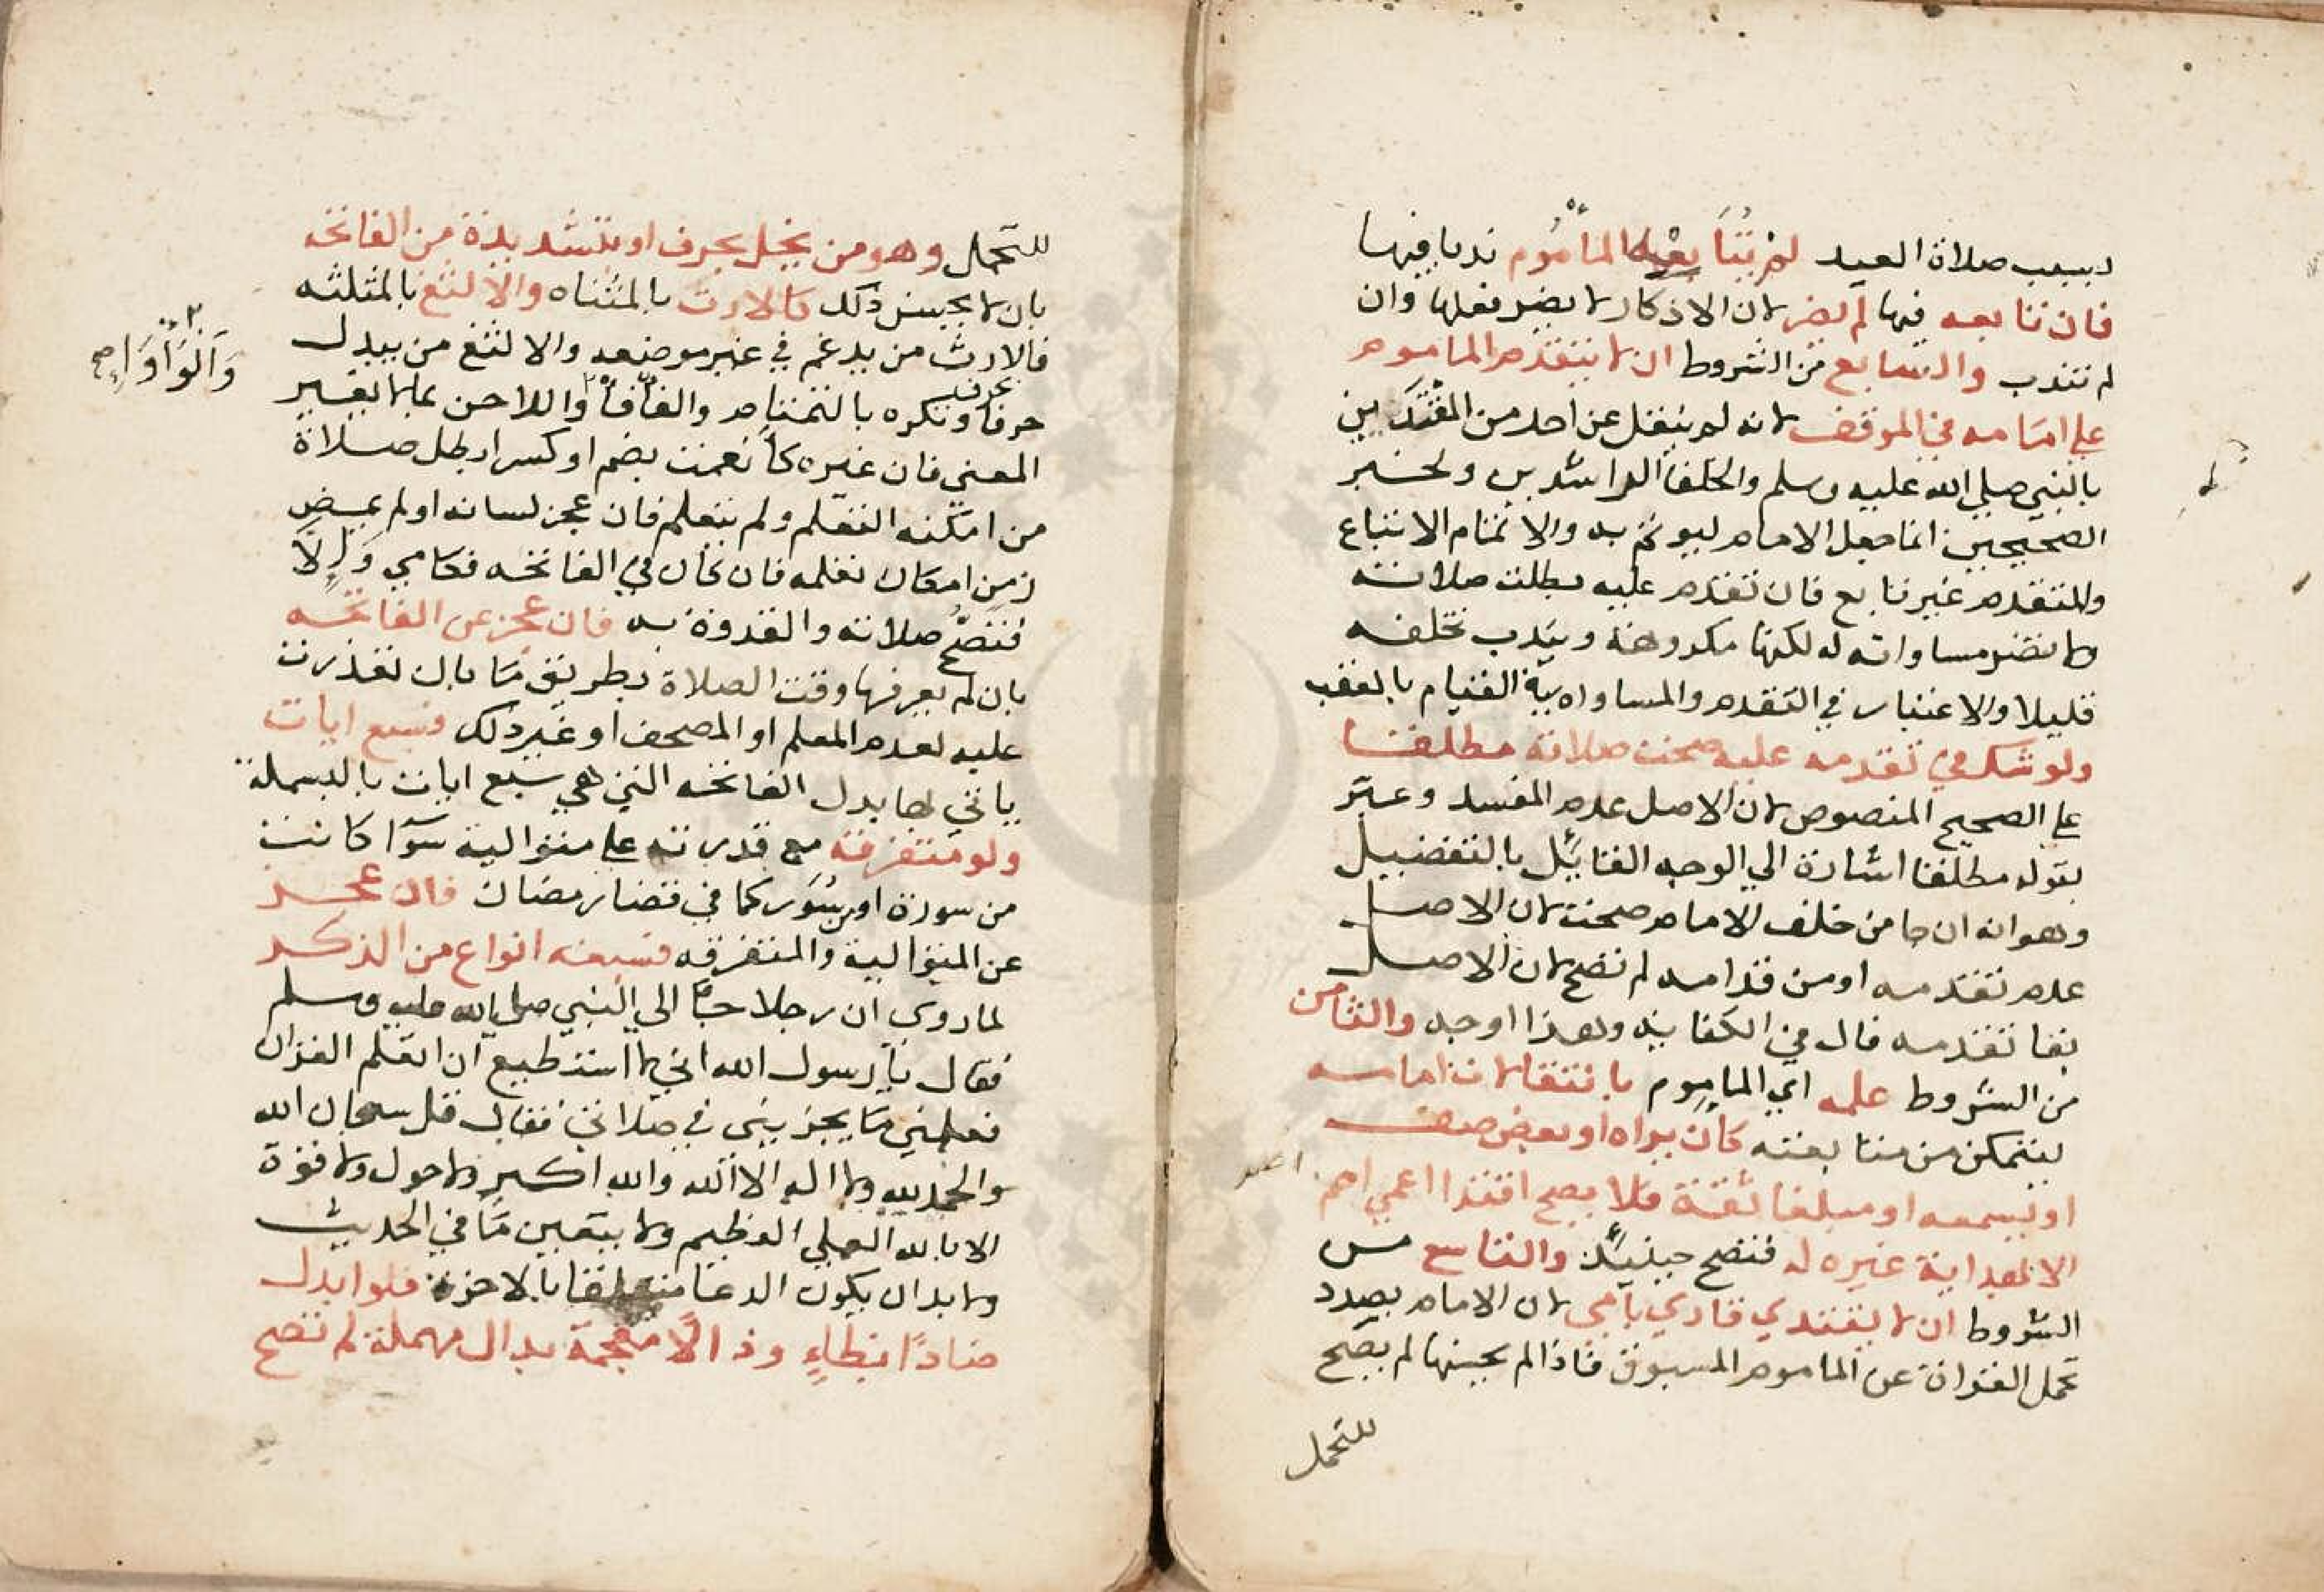 بسبب صلاة العيد لم يتابعه المأموم ندبا فيها
فان تابعه فيها لم يضر لان الاذكار لا يضر فعلها وان
لم تندب والسابع من الشروط ان لا يتقدم الماموم
على امامه في الموقف لانه لم ينقل عن احد من المقتدين
بالنبي صلي الله عليه وسلم والخلفا الراشدين ولخبر
الصحيحين انما جعل الامام ليوتم به والائتمام الاتباع
والمتقدم غير تابع فان تقدم عليه بطلت صلاته
ولا تضر مساواته له لكنها مكروهة ويندب تخلفه
قليلا والاعتبار في التقدم والمساواه في القيام بالعقب
ولو شك في تقدمه عليه صحت صلاته مطلقا
على الصحيح المنصوص لان الاصل عدم المفسد وعبر
بقوله مطلقا اشارة الي الوجه القائل بالتفضيل
وهو انه ان جا من خلف الامام صحت لان الاصل
عدم تقدمه او من قدامه لم تصح لان الاصل
بقا تقدمه قال في الكفاية وهذا اوجه والثامن
من الشروط علمه اي الماموم بانتقالات امامه
ليتمكن من متابعته كان يراه او بعض صف
او يسمعه او مبلغا ثقة فلا يصح اقتدا اعمى اصم
الا بهداية غيره له فتصح حينئذ والتاسع من
الشروط ان لا يقتدي قاري بامي لان الامام بصدد
تحمل القراة عن الماموم المسبوق فاذا لم يحسنها لم يصح
للتحمل
للتحمل وهو من يخل بحرف او بتشديدة من الفاتحه
بان لا يحسن ذلك كالارت بالمثناه والالثغ بالمثلثه
فالارت من يدغم في غير موضعه والالثغ من يبدل
حرفا بحرف وتكره بالتمتام والفأفأ واللاحن بما لا يغير
وَالْوَأْوَاءِ صح
المعنى فان غيره كانعمت بضم او كسر ابطل صلاة
من امكنه التعلم ولم يتعلم فان عجز لسانه او لم يمض
زمن امكان تعلمه فان كان في الفاتحه فكامي وَاِلَّا
فتصح صلاته والقدوة به فان عجز عن الفاتحه
بان لم يعرفها وقت الصلاة بطريق ما بان تعذرت
عليه لعدم المعلم او المصحف او غير ذلك فسبع ايات
ياتي بها بدل الفاتحه التي هي سبع ايات بالبسملة
ولو متفرقة مع قدرته على متوالية سوآ كانت
من سورة او من سُوَر كما في قضا رمضان فان عجز
عن المتوالية والمتفرقه فسبعه انواع من الذكر
لما روي ان رجلا جا الي النبي صلي الله عليه وسلم
فقال يا رسول الله اني لا استطيع ان اتعلم القران
فعلمني ما يجزيني في صلاتي فقال قل سبحان الله
والحمد لله ولا اله الا الله والله اكبر ولا حول ولا قوة
الا بالله العلي العظيم ولا يتعين ما في الحديث
ولا بد ان يكون الدعا متعلقا بالاخرة فلو ابدل
ضادًا بظاءٍ وذالًا معجمة بدال مهملة لم تصح